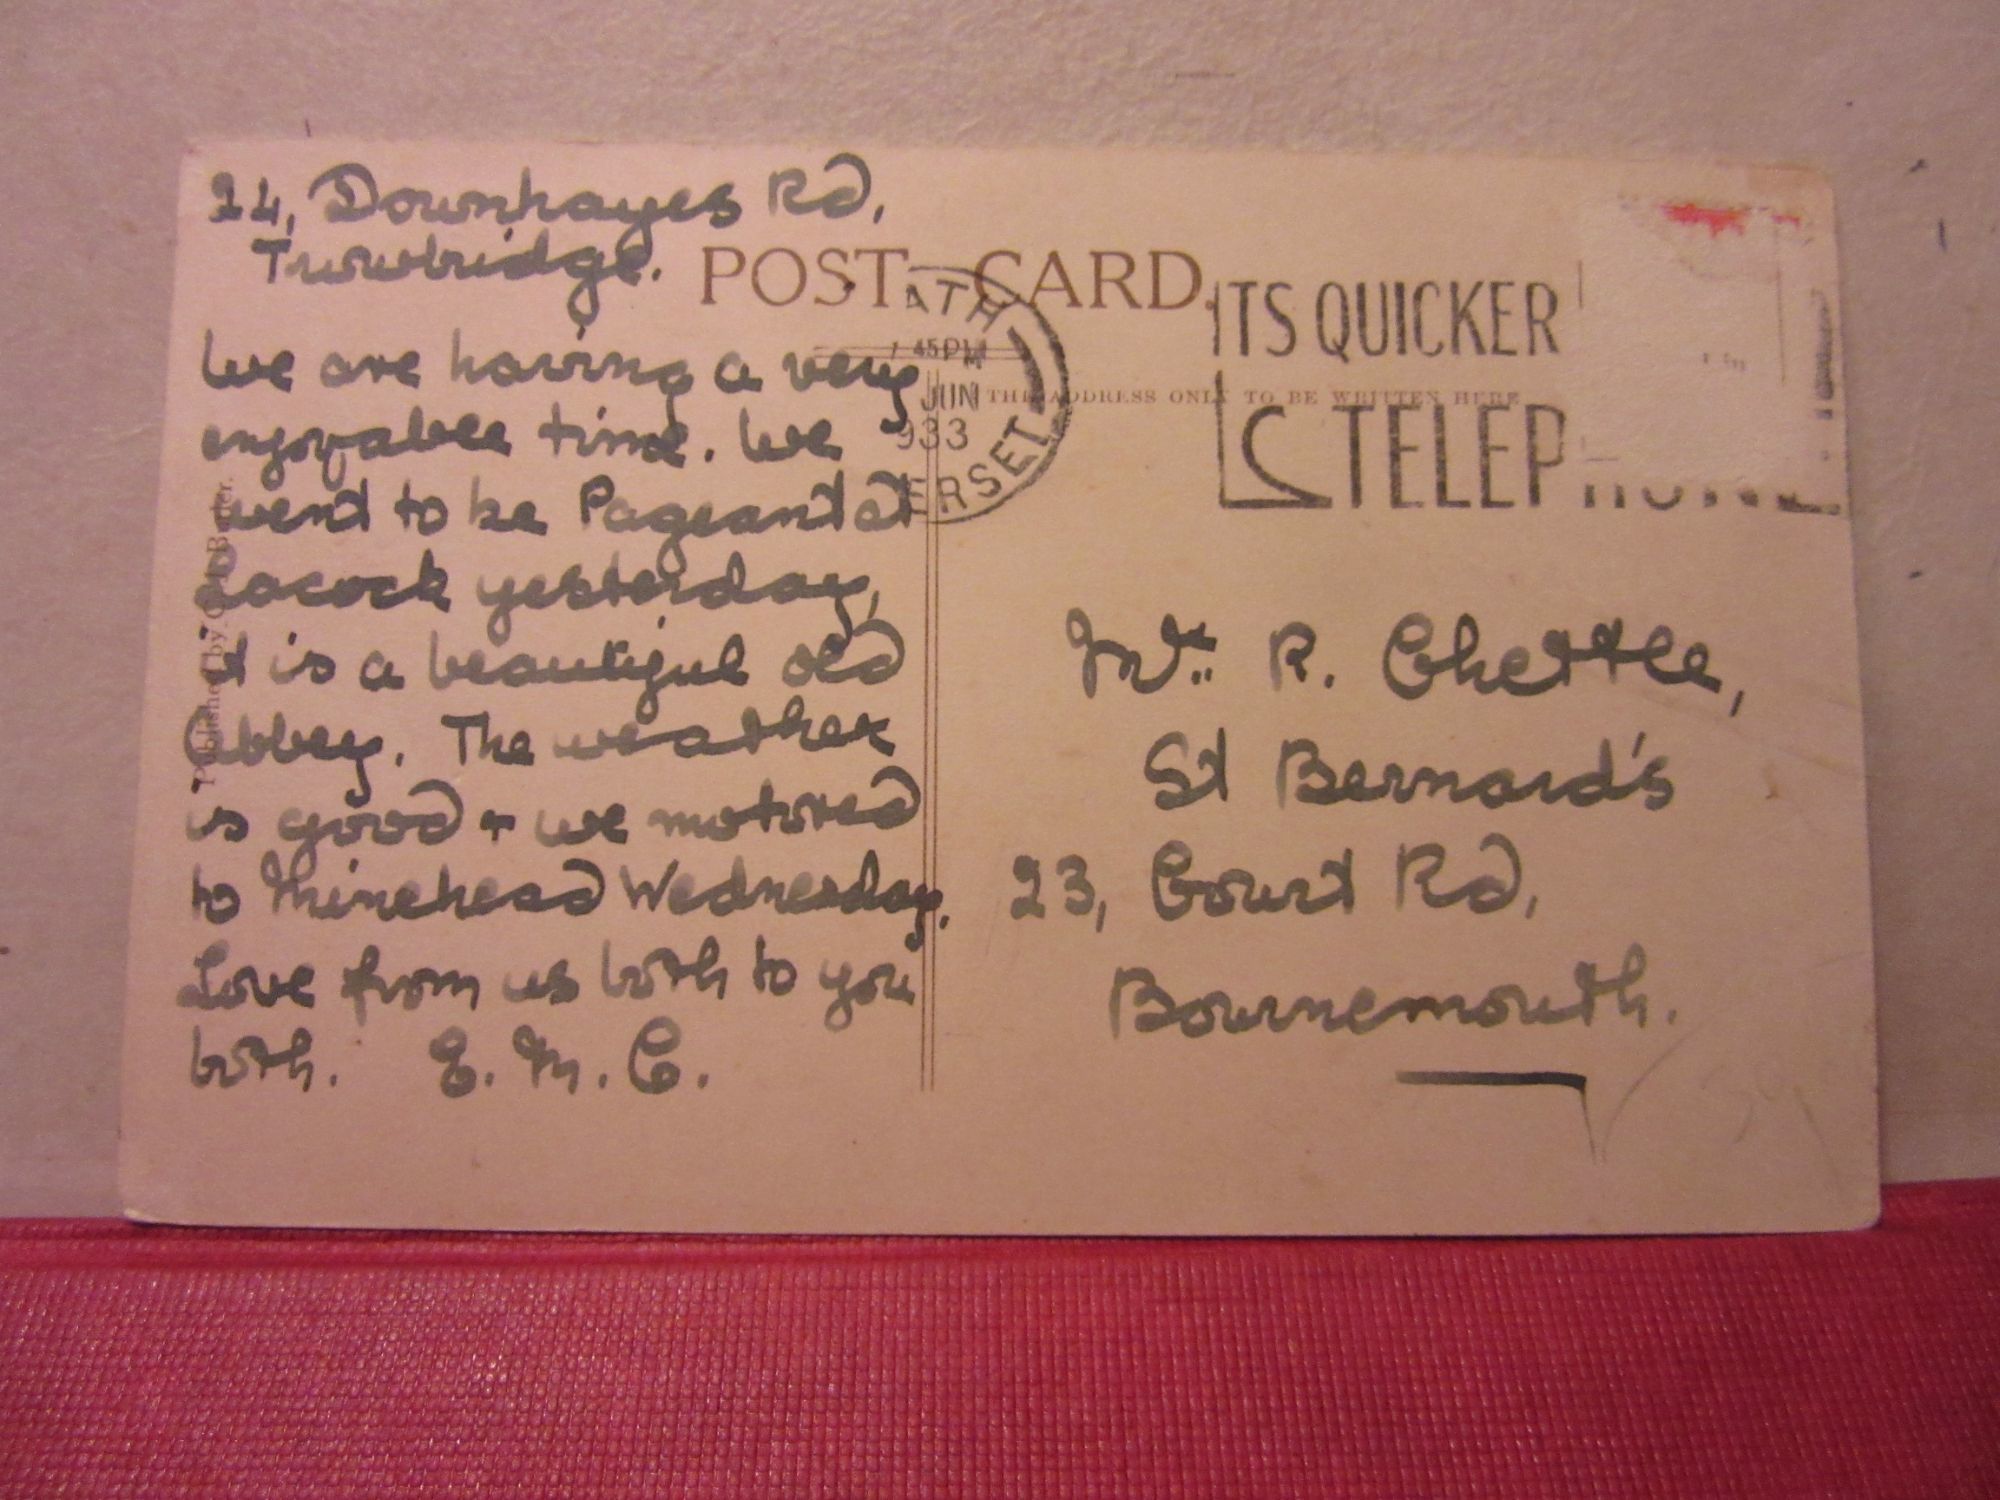 24, Downhayes Rd,
Trowbridge.
We are having a very
enjoyable time. We
went to be Pageant at
Lacock yesterday,
it is a beautiful old
Abbey. The weather
is good + we motored
to Minehead Wednesday.
Love from us both to you
both. E. M. C.
Published by
POST CARD.
THE ADDRESS ONLY TO BE WRITTEN HERE
ATH
45 PM
JUN
933
ERSET
ITS QUICKER
TELEPHONE
Mrs. R. Chettle,
St Bernard's
23, Court Rd,
Bournemouth.